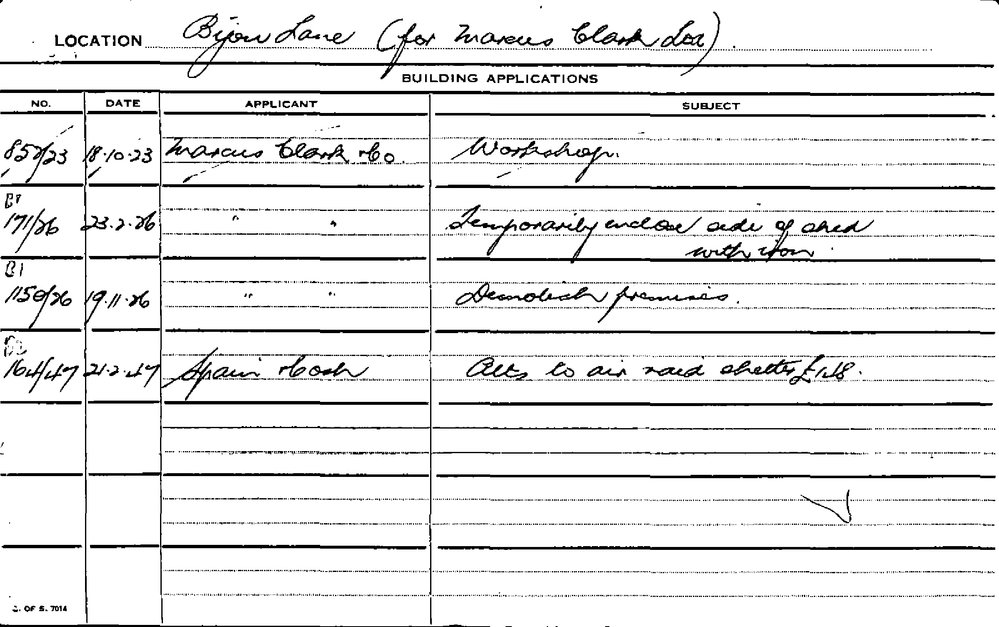 LOCATION Bijou Lane (for Marcus Clark Ltd)
BUILDING APPLICATIONS
NO. DATE APPLICANT SUBJECT
858/23 18.10.23 Marcus Clark & Co. Workshop.
B1
171/26 23.2.26 " " Temporarily enclose side of shed
with iron
B1
1150/26 19.11.26 " " Demolish premises.
164/47 21.2.47 Spain & Cosh Alts to air raid shelter
OF S. 7014